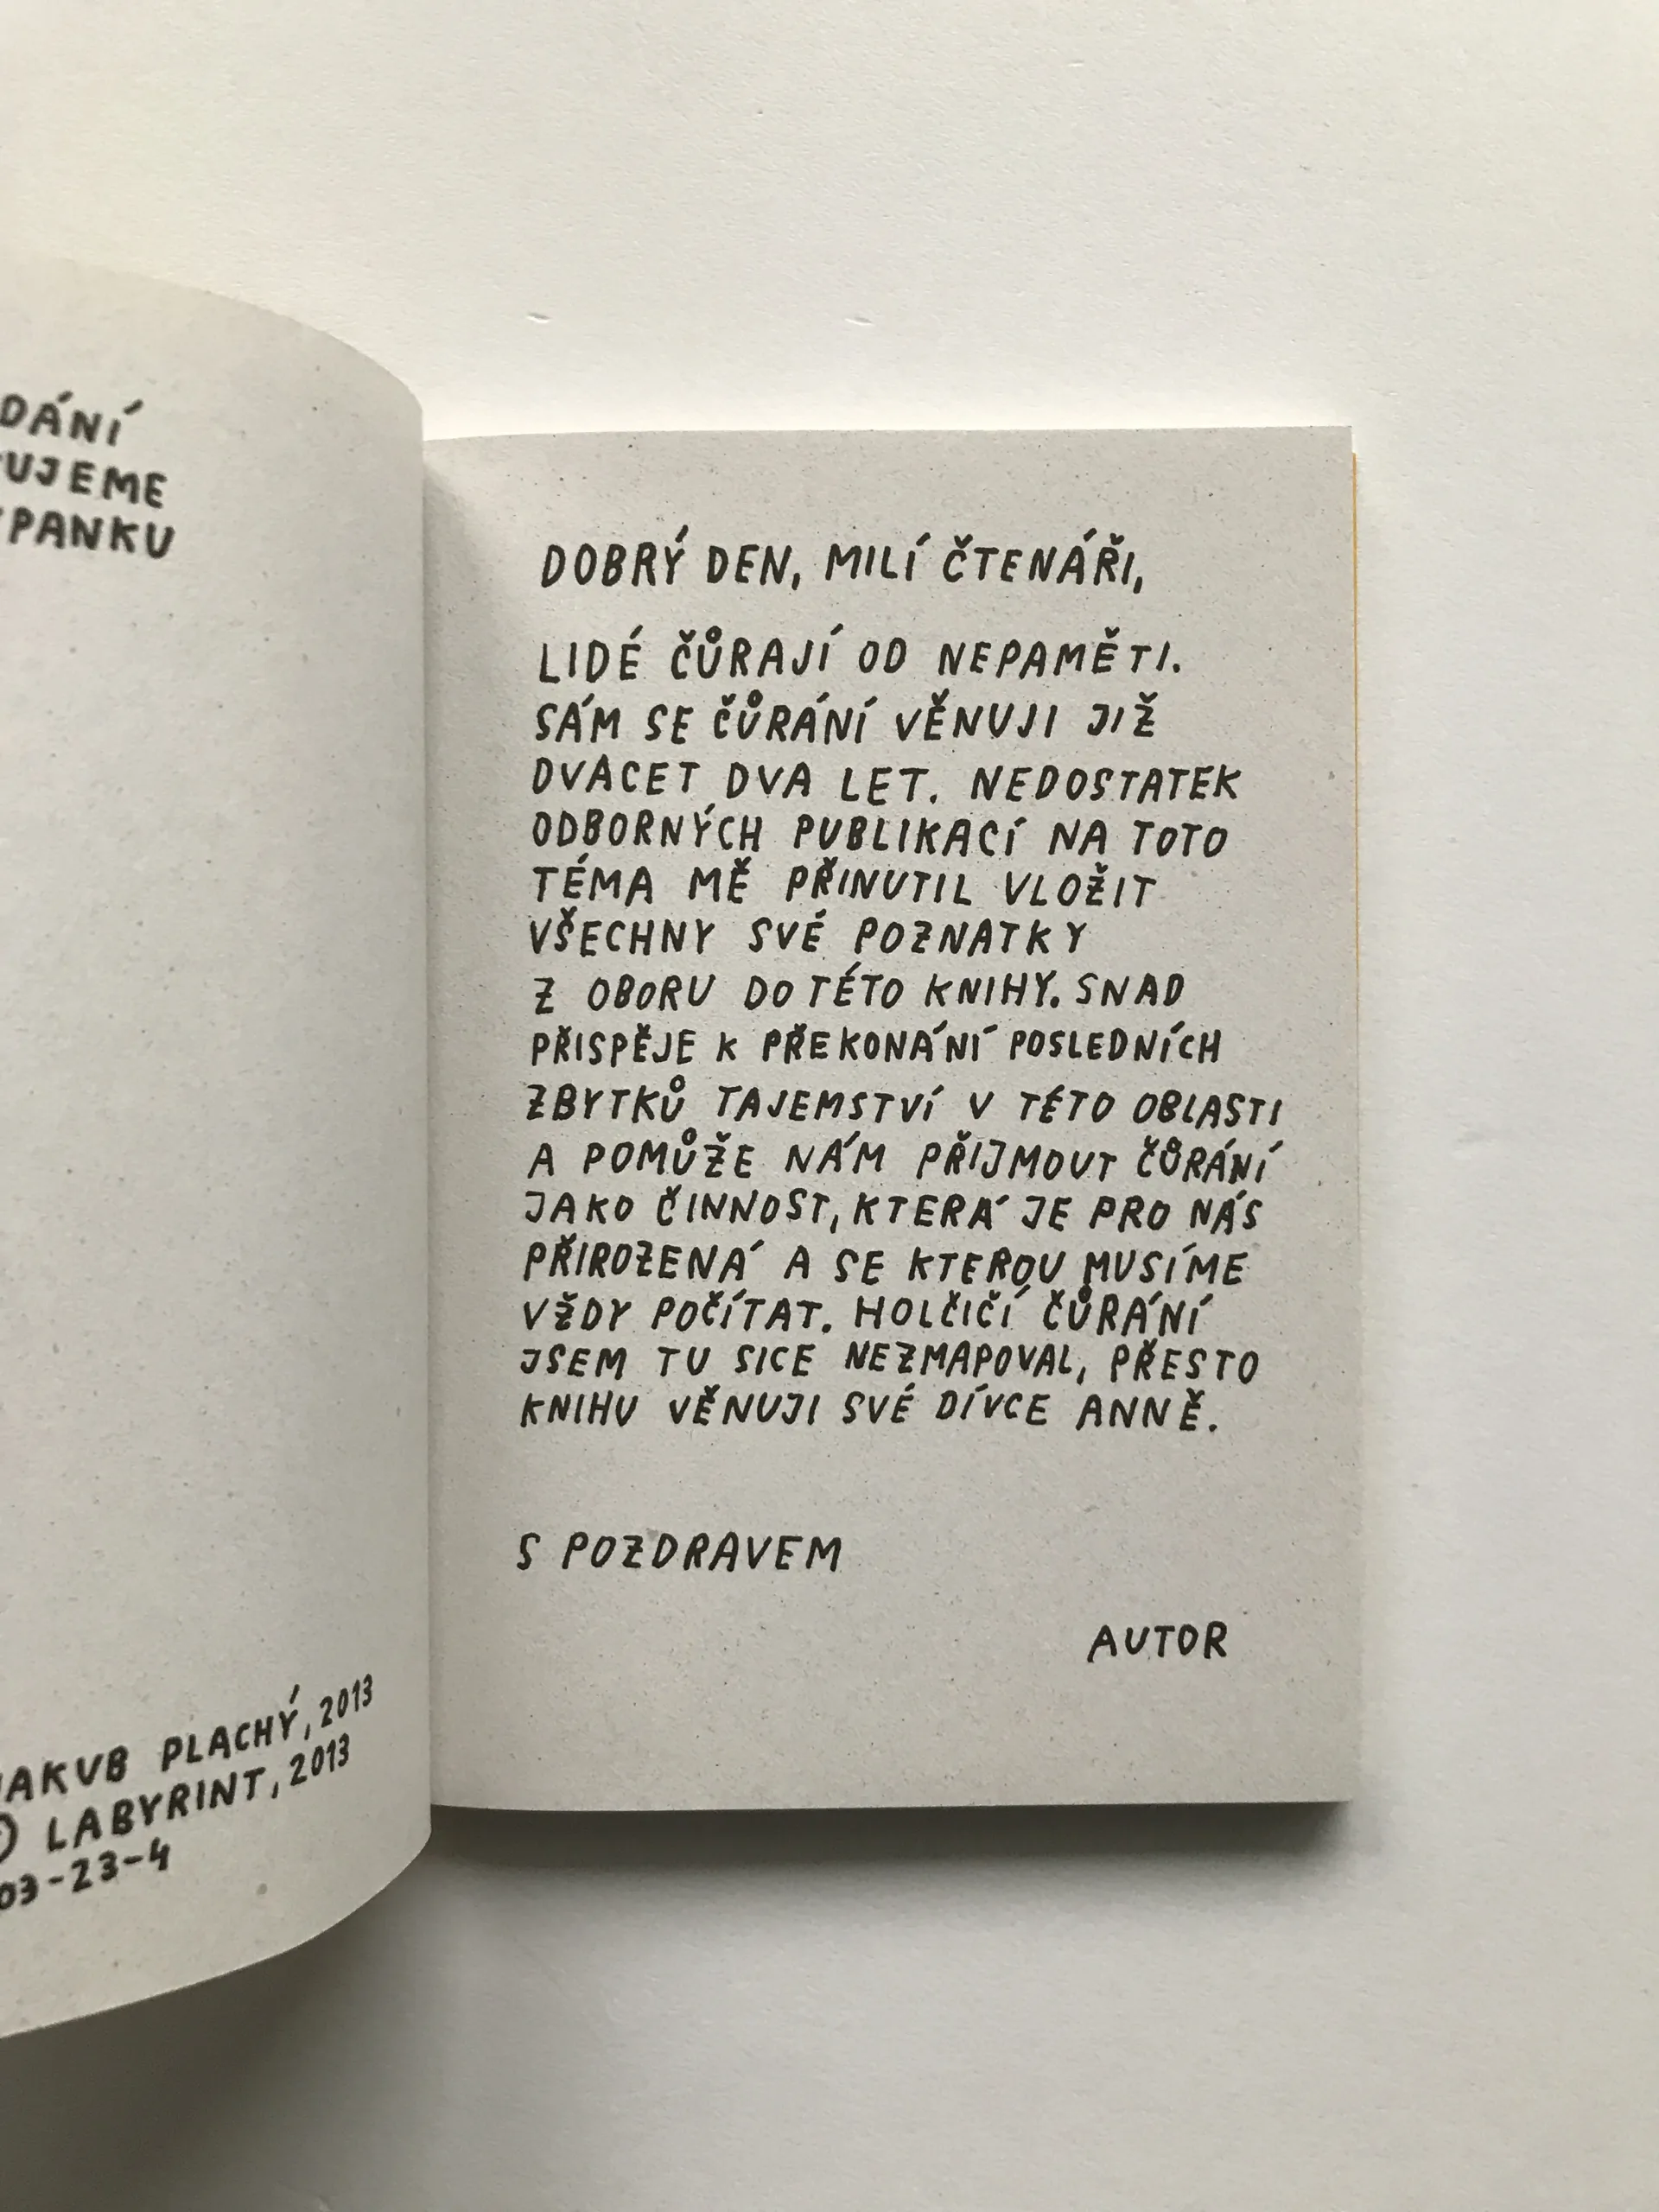 DOBRÝ DEN, MILÍ ČTENÁŘI,
LIDÉ ČŮRAJÍ OD NEPAMĚTI.
SÁM SE ČŮRÁNÍ VĚNUJI JIŽ
DVACET DVA LET. NEDOSTATEK
ODBORNÝCH PUBLIKACÍ NA TOTO
TÉMA MĚ PŘINUTIL VLOŽIT
VŠECHNY SVÉ POZNATKY
Z OBORU DO TÉTO KNIHY. SNAD
PŘISPĚJE K PŘEKONÁNÍ POSLEDNÍCH
ZBYTKŮ TAJEMSTVÍ V TÉTO OBLASTI
A POMŮŽE NÁM PŘIJMOUT ČŮRÁNÍ
JAKO ČINNOST, KTERÁ JE PRO NÁS
PŘIROZENÁ A SE KTEROU MUSÍME
VŽDY POČÍTAT. HOLČIČÍ ČŮRÁNÍ
JSEM TU SICE NEZMAPOVAL, PŘESTO
KNIHU VĚNUJI SVÉ DÍVCE ANNĚ.
S POZDRAVEM
AUTOR
PLACHÝ, 2013
LABYRINT, 2013
03-23-4